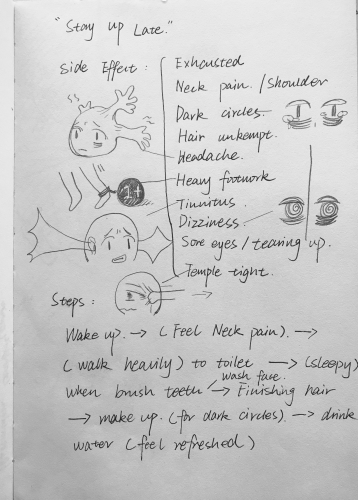 "Stay up Late."
Side Effect:
Exhausted
Neck pain. /shoulder
Dark circles.
Hair unkempt.
Headache.
Heavy footwork
1t
Tinnitus
Dizziness.
Sore eyes / tearing up.
Temple tight.
Steps:
Wake up. → (Feel Neck pain). →
(walk heavily) to toilet → (sleepy)
wash face.
when brush teeth → Finishing hair
→ make up. (for dark circles). → drink
water (feel refreshed)